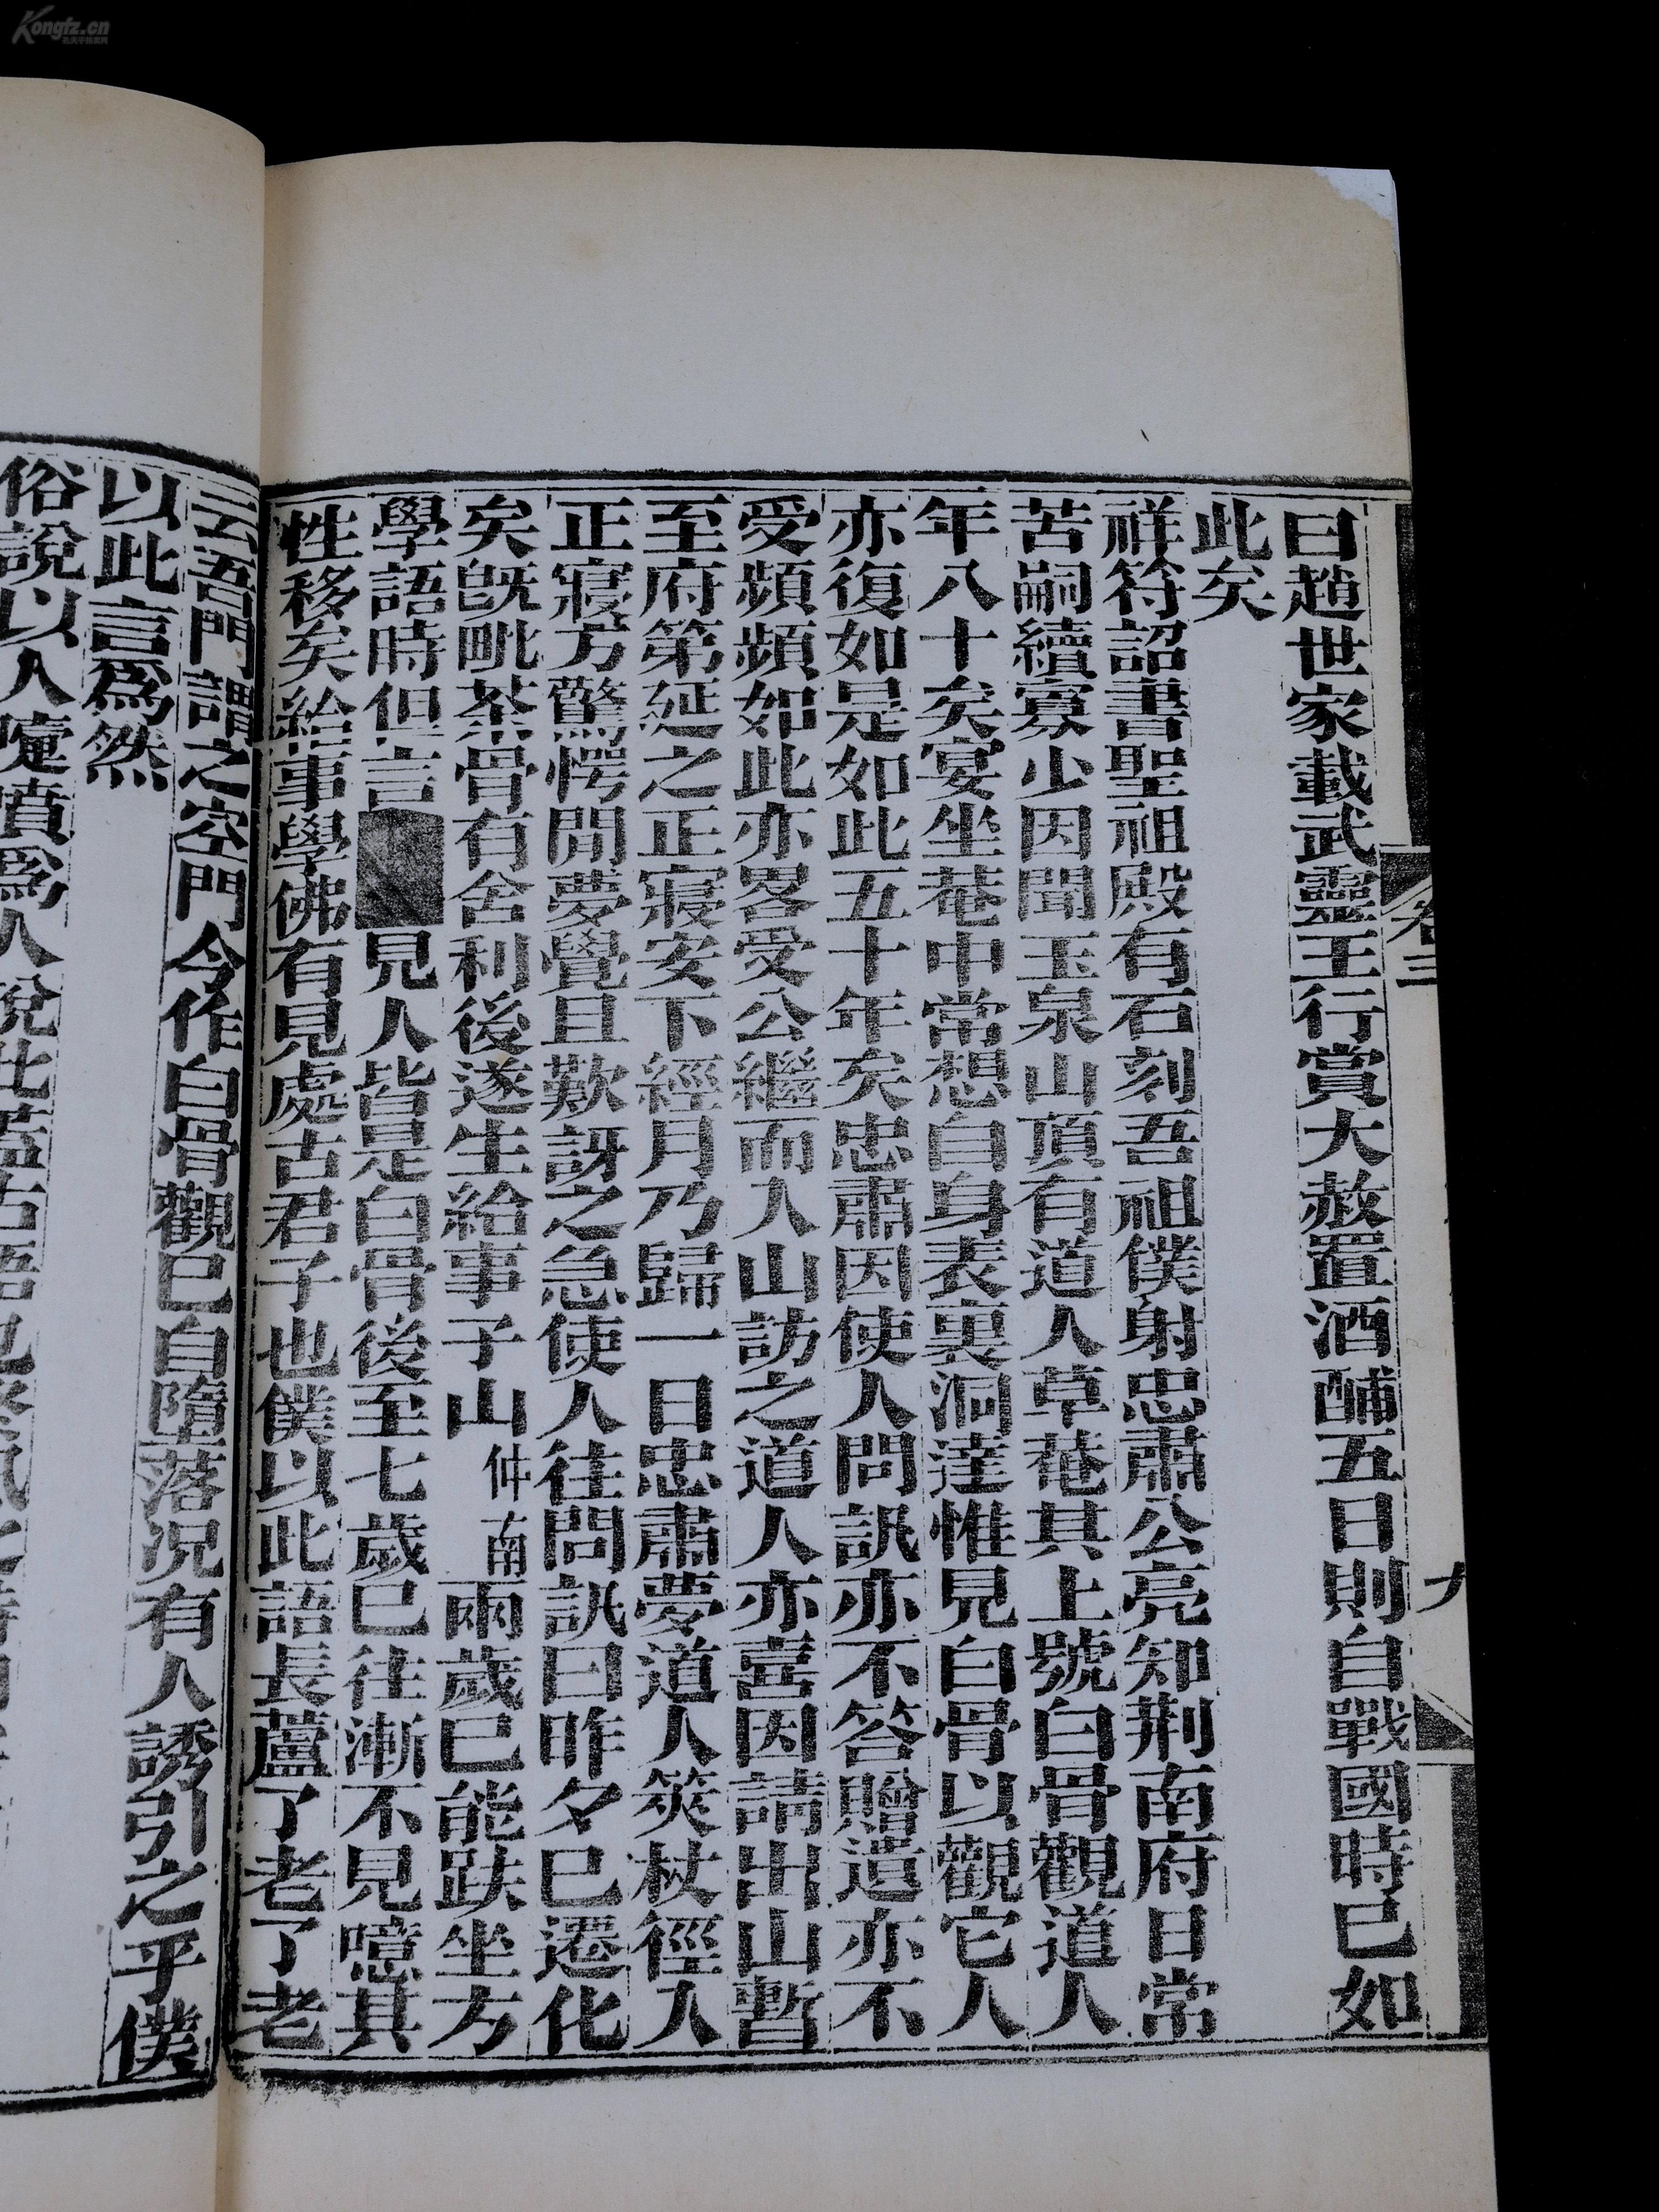 Kongfz.cn
孔夫子旧书网
卷三
九
曰趙世家載武靈王行賞大赦置酒酺五日則自戰國時已如
此矣
祥符詔書聖祖殿有石刻吾祖僕射忠肅公亮知荆南府日常
苦嗣續寡少因聞玉泉山頂有道人草菴其上號白骨觀道人
年八十矣宴坐菴中常想自身表裏洞達惟見白骨以觀它人
亦復如是如此五十年矣忠肅因使人問訊亦不答贈遺亦不
受頻頻如此亦畧受公繼而入山訪之道人亦喜因請出山暫
至府第延之正寢安下經月乃歸一日忠肅夢道人筴杖徑入
正寢方驚愕閒夢覺且歎訝之急使人往問訊曰昨夕已遷化
矣旣毗茶骨有舍利後遂生給事子山仲南兩歲已能趺坐方
學語時但言見人皆是白骨後至七歲已往漸不見噫其
性移矣給事學佛有見處古君子也僕以此語長蘆了老了老
云吾門謂之空門今作白骨觀已自墮落況有人誘引之乎僕
以此言爲然
俗說以人嚏噴爲人說此葢古語也